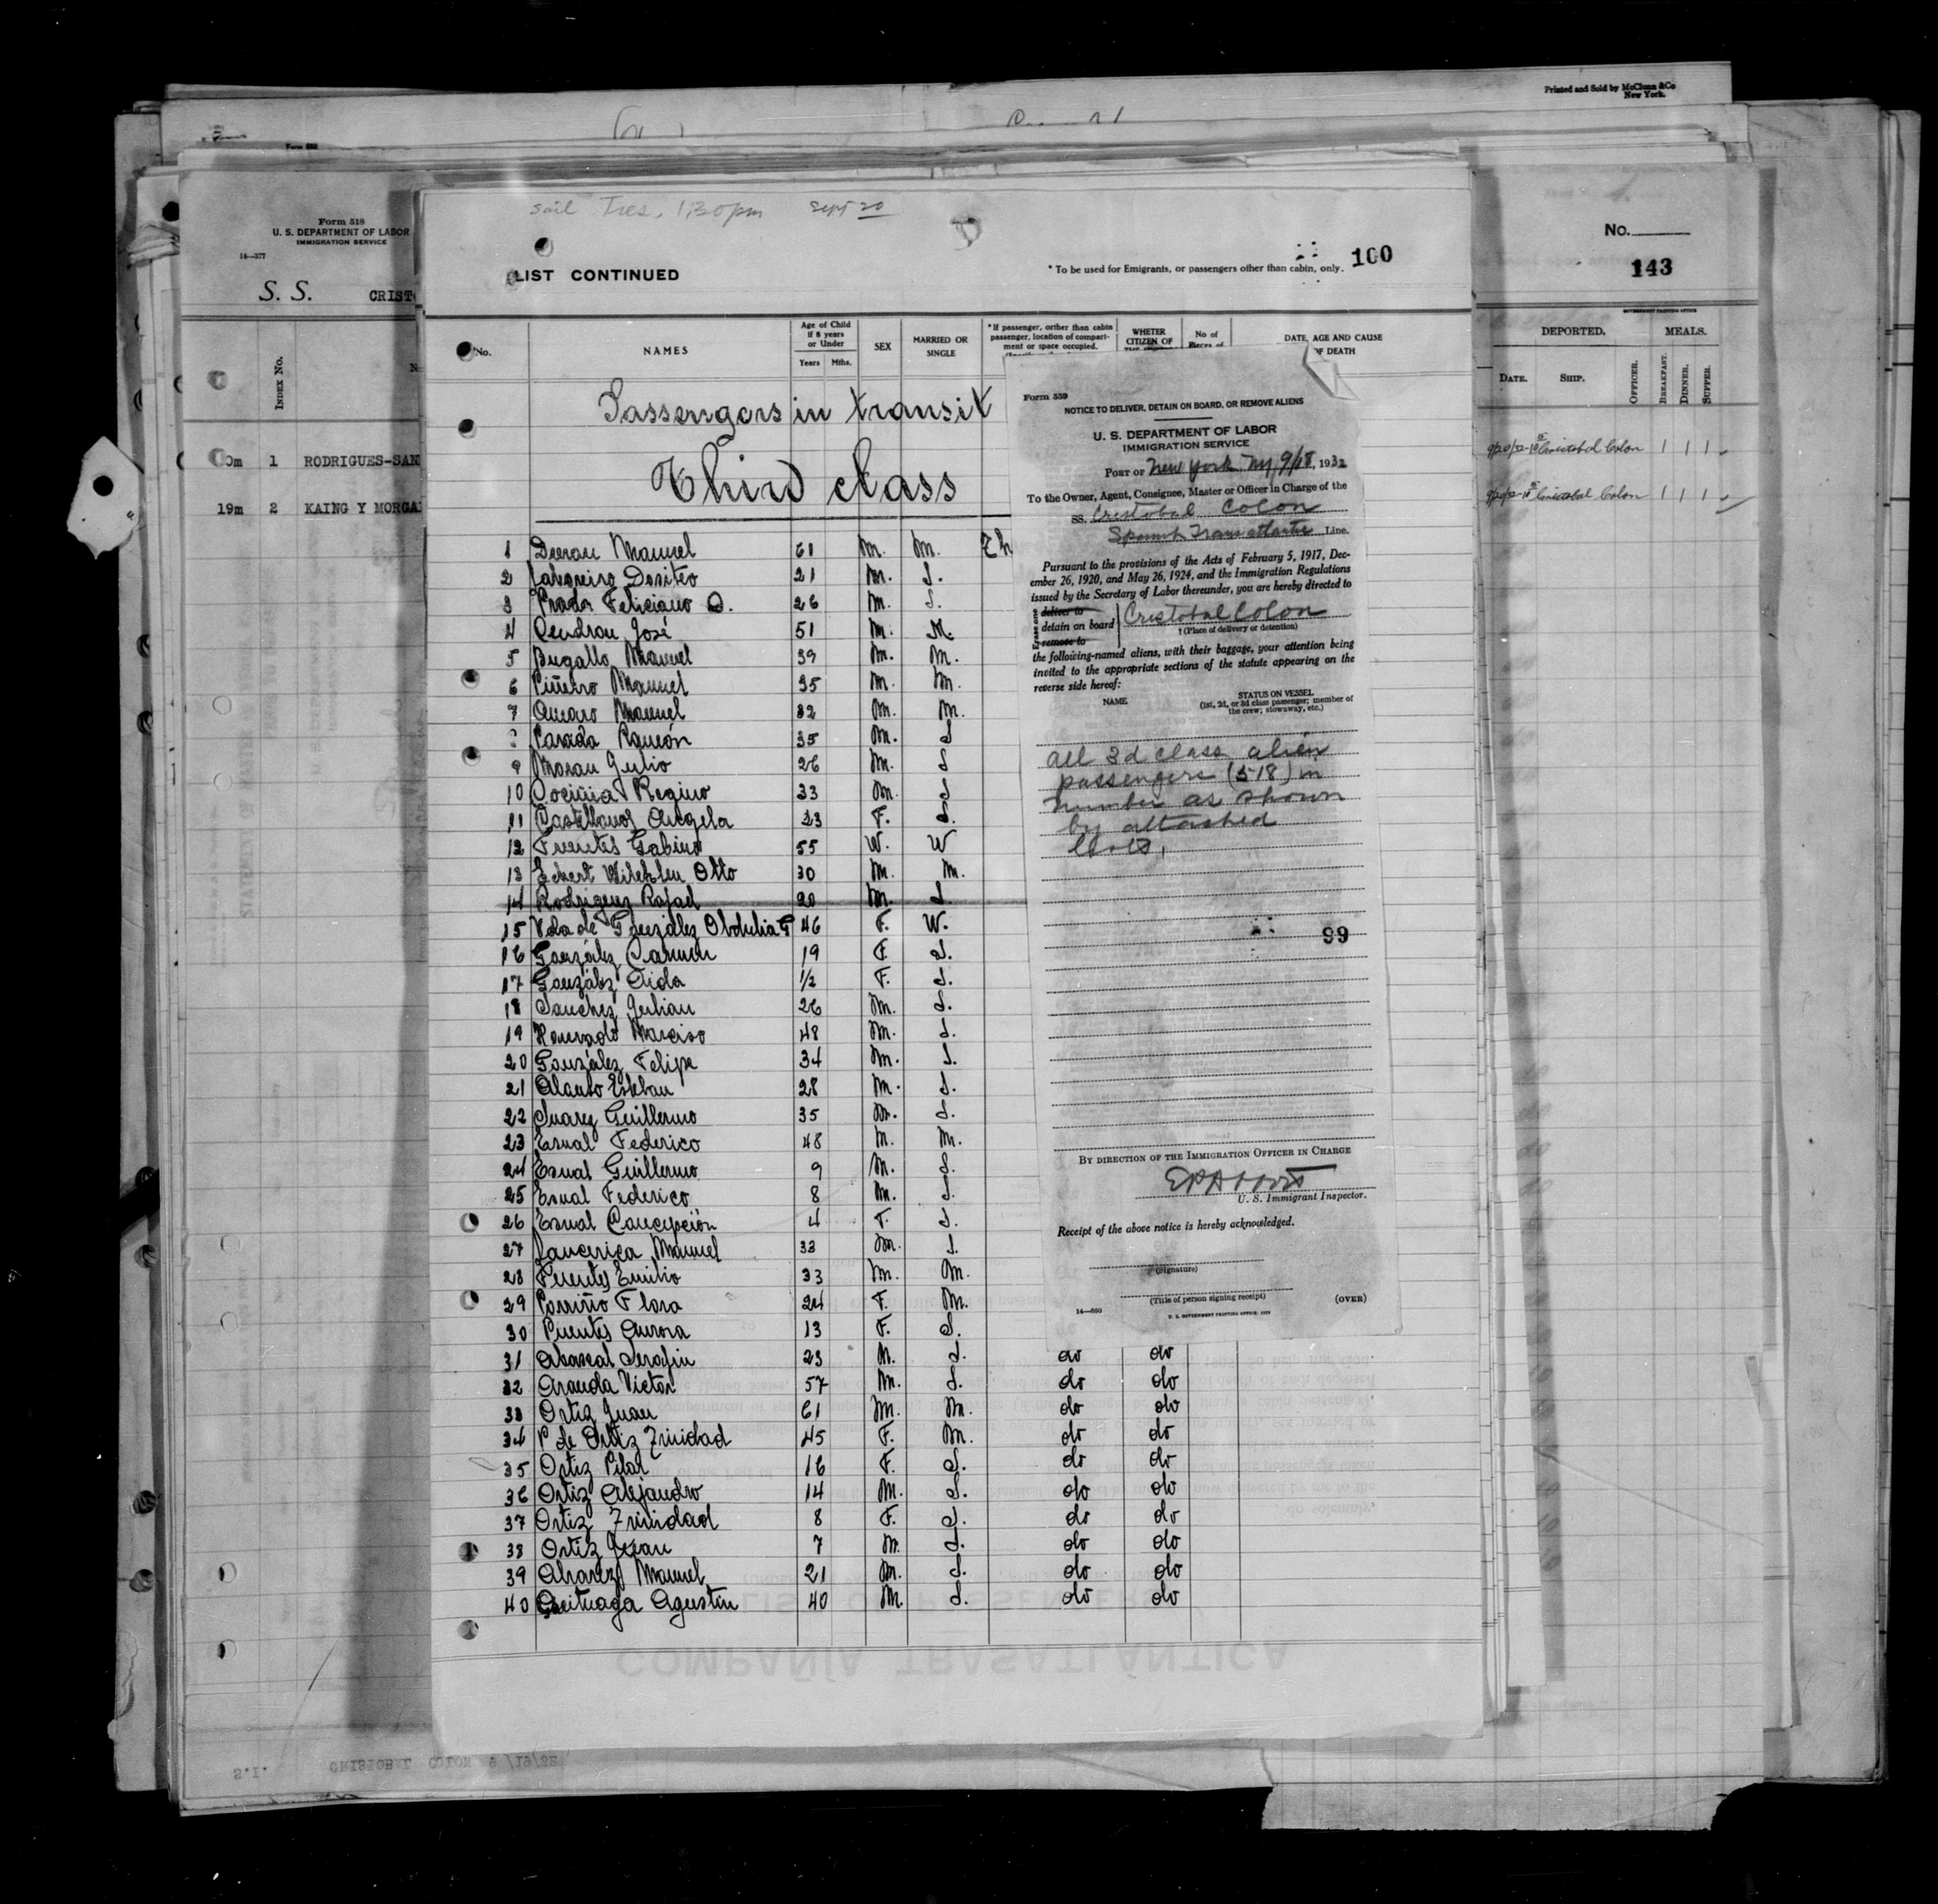 Printed and Sold by McClunn & Co
New York.
Form 518
U. S. DEPARTMENT OF LABOR
IMMIGRATION SERVICE
14—377
S. S. CRIST
INDEX No.
1 RODRIGUES-SAN
19m 2 KAING Y MORGA
No.
143
DEPORTED. MEALS.
DATE. SHIP. OFFICER. BREAKFAST. DINNER. SUPPER.
Cristobal Colon 1 1 1
Cristobal Colon 1 1 1
sail Tues. 1:30 pm Sept 20
LIST CONTINUED
* To be used for Emigrants, or passengers other than cabin, only. 100
No. NAMES
Age of Child if 8 years or Under
Years Mths.
SEX
MARRIED OR SINGLE
* If passenger, orther than cabin passenger, location of compartiment or space occupied.
WHETER CITIZEN OF
No of Pieces of
DATE, AGE AND CAUSE OF DEATH
Passengers in transit
Third class
1 Manuel 61 M. M. Th
2 Dositeo 21 M. S.
3 Prada Feliciano O. 26 M. S.
4 Cendran José 51 M. M.
5 Bugallo Manuel 39 M. M.
6 Piñeiro Manuel 35 M. M.
7 Amaro Manuel 32 M. M.
Parada Ramón 35 M. S
9 Moran Julio 26 M. S
10 Regino 33 M. S
11 Castellanos Angela 23 F. S.
12 Fuentes Gabino 55 W. W
13 Otto 30 M. M.
14 Rodriguez Rafael 20 M. S.
15 Vda de González Obdulia G 46 F. W.
16 González Carmen 19 F. S.
17 González Aida 1/2 F. S.
18 Sanchez Julian 26 M. S.
19 Narciso 48 M. S.
20 González Felipe 34 M. S.
21 Alonso Esteban 28 M. S.
22 Suarez Guillermo 35 M. S.
23 Esnal Federico 48 M. M.
24 Esnal Guillermo 9 M. S.
25 Esnal Federico 8 M. S.
26 Esnal Concepción 4 F. S.
27 Manuel 33 M. S.
28 Fuentes Emilio 33 M. M.
29 Flora 24 F. M.
30 Fuentes Aurora 13 F. S.
31 Abascal Serafin 23 M. S. do do
32 Aranda Victor 57 M. S. do do
33 Ortiz Juan 61 M. M. do do
34 P de Ortiz Trinidad 45 F. M. do do
35 Ortiz Pilar 16 F. S. do do
36 Ortiz Alejandro 14 M. S. do do
37 Ortiz Trinidad 8 F. S. do do
38 Ortiz 7 M. S. do do
39 Alvarez Manuel 21 M. S. do do
40 Agustin 40 M. S. do do
Form 559
NOTICE TO DELIVER, DETAIN ON BOARD, OR REMOVE ALIENS
U. S. DEPARTMENT OF LABOR
IMMIGRATION SERVICE
PORT OF New York NY 9/18, 1932
To the Owner, Agent, Consignee, Master or Officer in Charge of the
SS. Cristobal Colon
Spanish Transatlantic Line.
Pursuant to the provisions of the Acts of February 5, 1917, Dec-
ember 26, 1920, and May 26, 1924, and the Immigration Regulations
issued by the Secretary of Labor thereunder, you are hereby directed to
deliver to
detain on board Cristobal Colon
remove to † (Place of delivery or detention)
the following-named aliens, with their baggage, your attention being
invited to the appropriate sections of the statute appearing on the
reverse side hereof:
NAME STATUS ON VESSEL
(1st, 2d, or 3d class passenger; member of
the crew; stowaway, etc.)
all 3d class alien
passengers (518) in
number as shown
by attached
lists,
99
BY DIRECTION OF THE IMMIGRATION OFFICER IN CHARGE
U. S. Immigrant Inspector.
Receipt of the above notice is hereby acknowledged.
(Signature)
(Title of person signing receipt) (OVER)
U. S. GOVERNMENT PRINTING OFFICE
COMPAÑÍA TRASATLANTICA
S.I. CRISTOBAL COLON 9/19/32